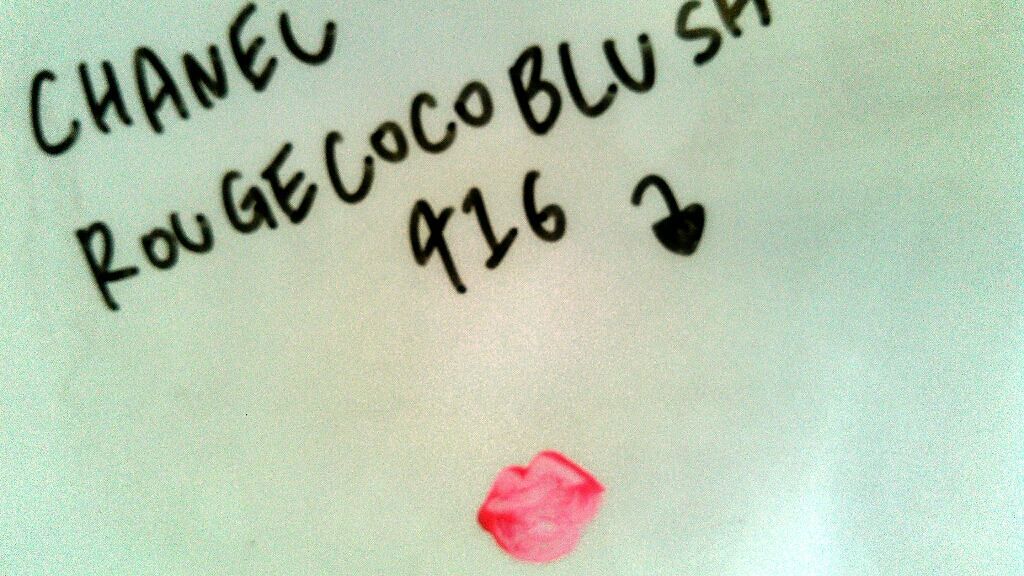 CHANEL
ROUGE COCO BLUSH
416